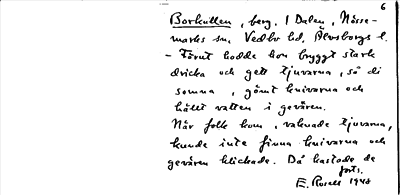 6
Borkullen, berg. I Dalen, Nösse-
marks sn. Vedbo hd. Älvsborgs l.
- Förut hodde hon bryggt stark
dricka och gett tjuvarna, så di
somna, gömt knivarna och
hällt vatten i gevären.
När folk kom, vaknade tjuvarna,
kunde inte finna knivarna och
gevären klickade. Då kastade de
forts.
E. Rosell 1940